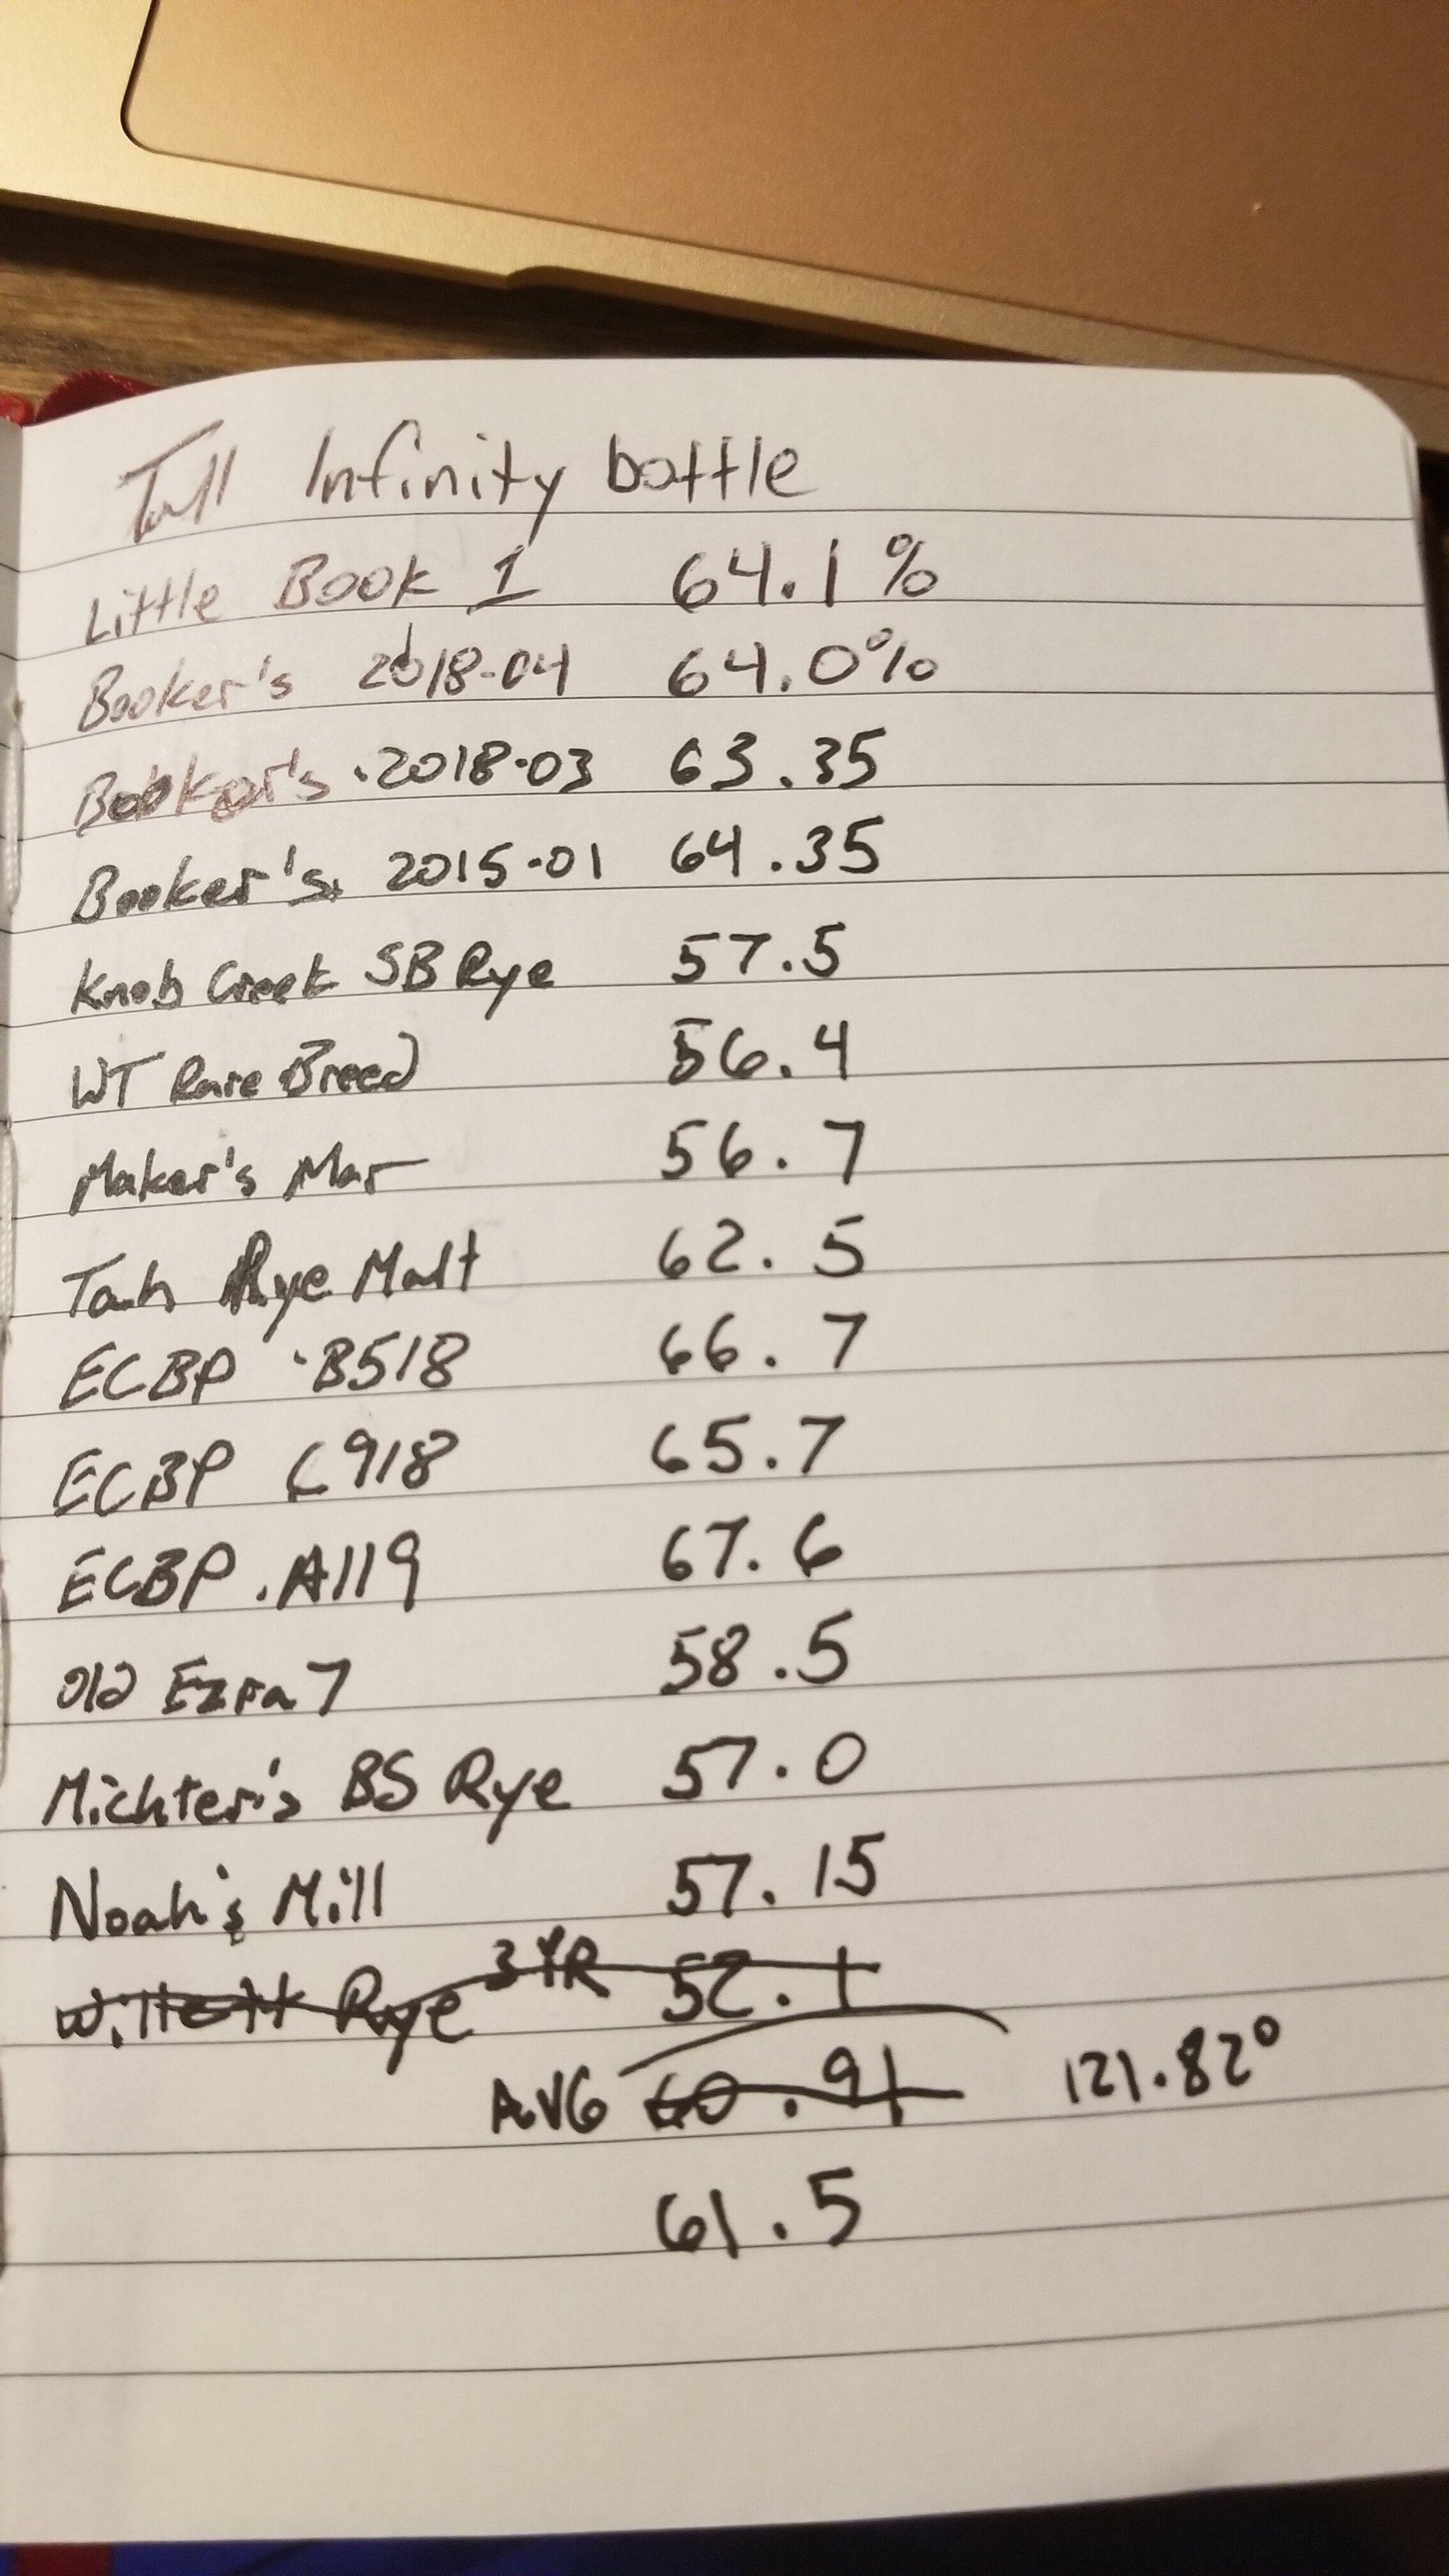 Tall Infinity bottle
Little Book 1 64.1%
Booker's 2018-04 64.0%
Booker's .2018-03 63.35
Booker's. 2015-01 64.35
Knob Creek SB Rye 57.5
WT Rare Breed 56.4
Maker's Mar 56.7
Tah Rye Malt 62.5
ECBP .B518 66.7
ECBP C918 65.7
ECBP .A119 67.6
Old Ezra 7 58.5
Michter's BS Rye 57.0
Noah's Mill 57.15
Willett Rye 3YR 52.1
AVG 60.91 121.82°
61.5